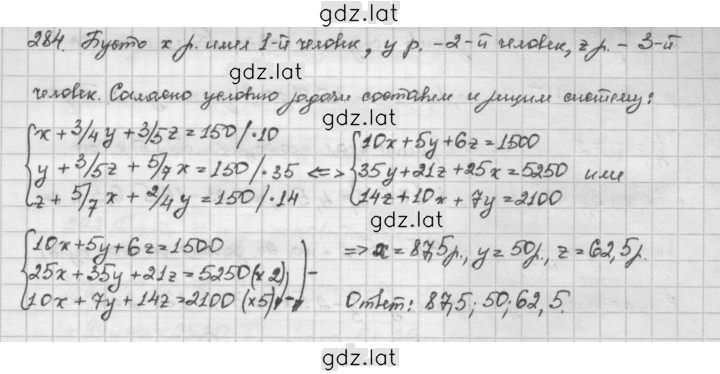 gdz.lat
284. Пусть x р. имел 1-й человек, y р. - 2-й человек, z р. - 3-й
gdz.lat
человек. Согласно условию задачи составим и решим систему:
x + 3/4 y + 3/5 z = 150 /·10
y + 3/5 z + 5/7 x = 150 /·35
z + 5/7 x + 2/4 y = 150 /·14
<=>
10x + 5y + 6z = 1500
35y + 21z + 25x = 5250 или
14z + 10x + 7y = 2100
gdz.lat
gdz.lat
10x + 5y + 6z = 1500
25x + 35y + 21z = 5250 (×2)
10x + 7y + 14z = 2100 (×5)
=> x = 87,5 р., y = 50 р., z = 62,5 р.
Ответ: 87,5; 50; 62,5.
gdz.lat
gdz.lat